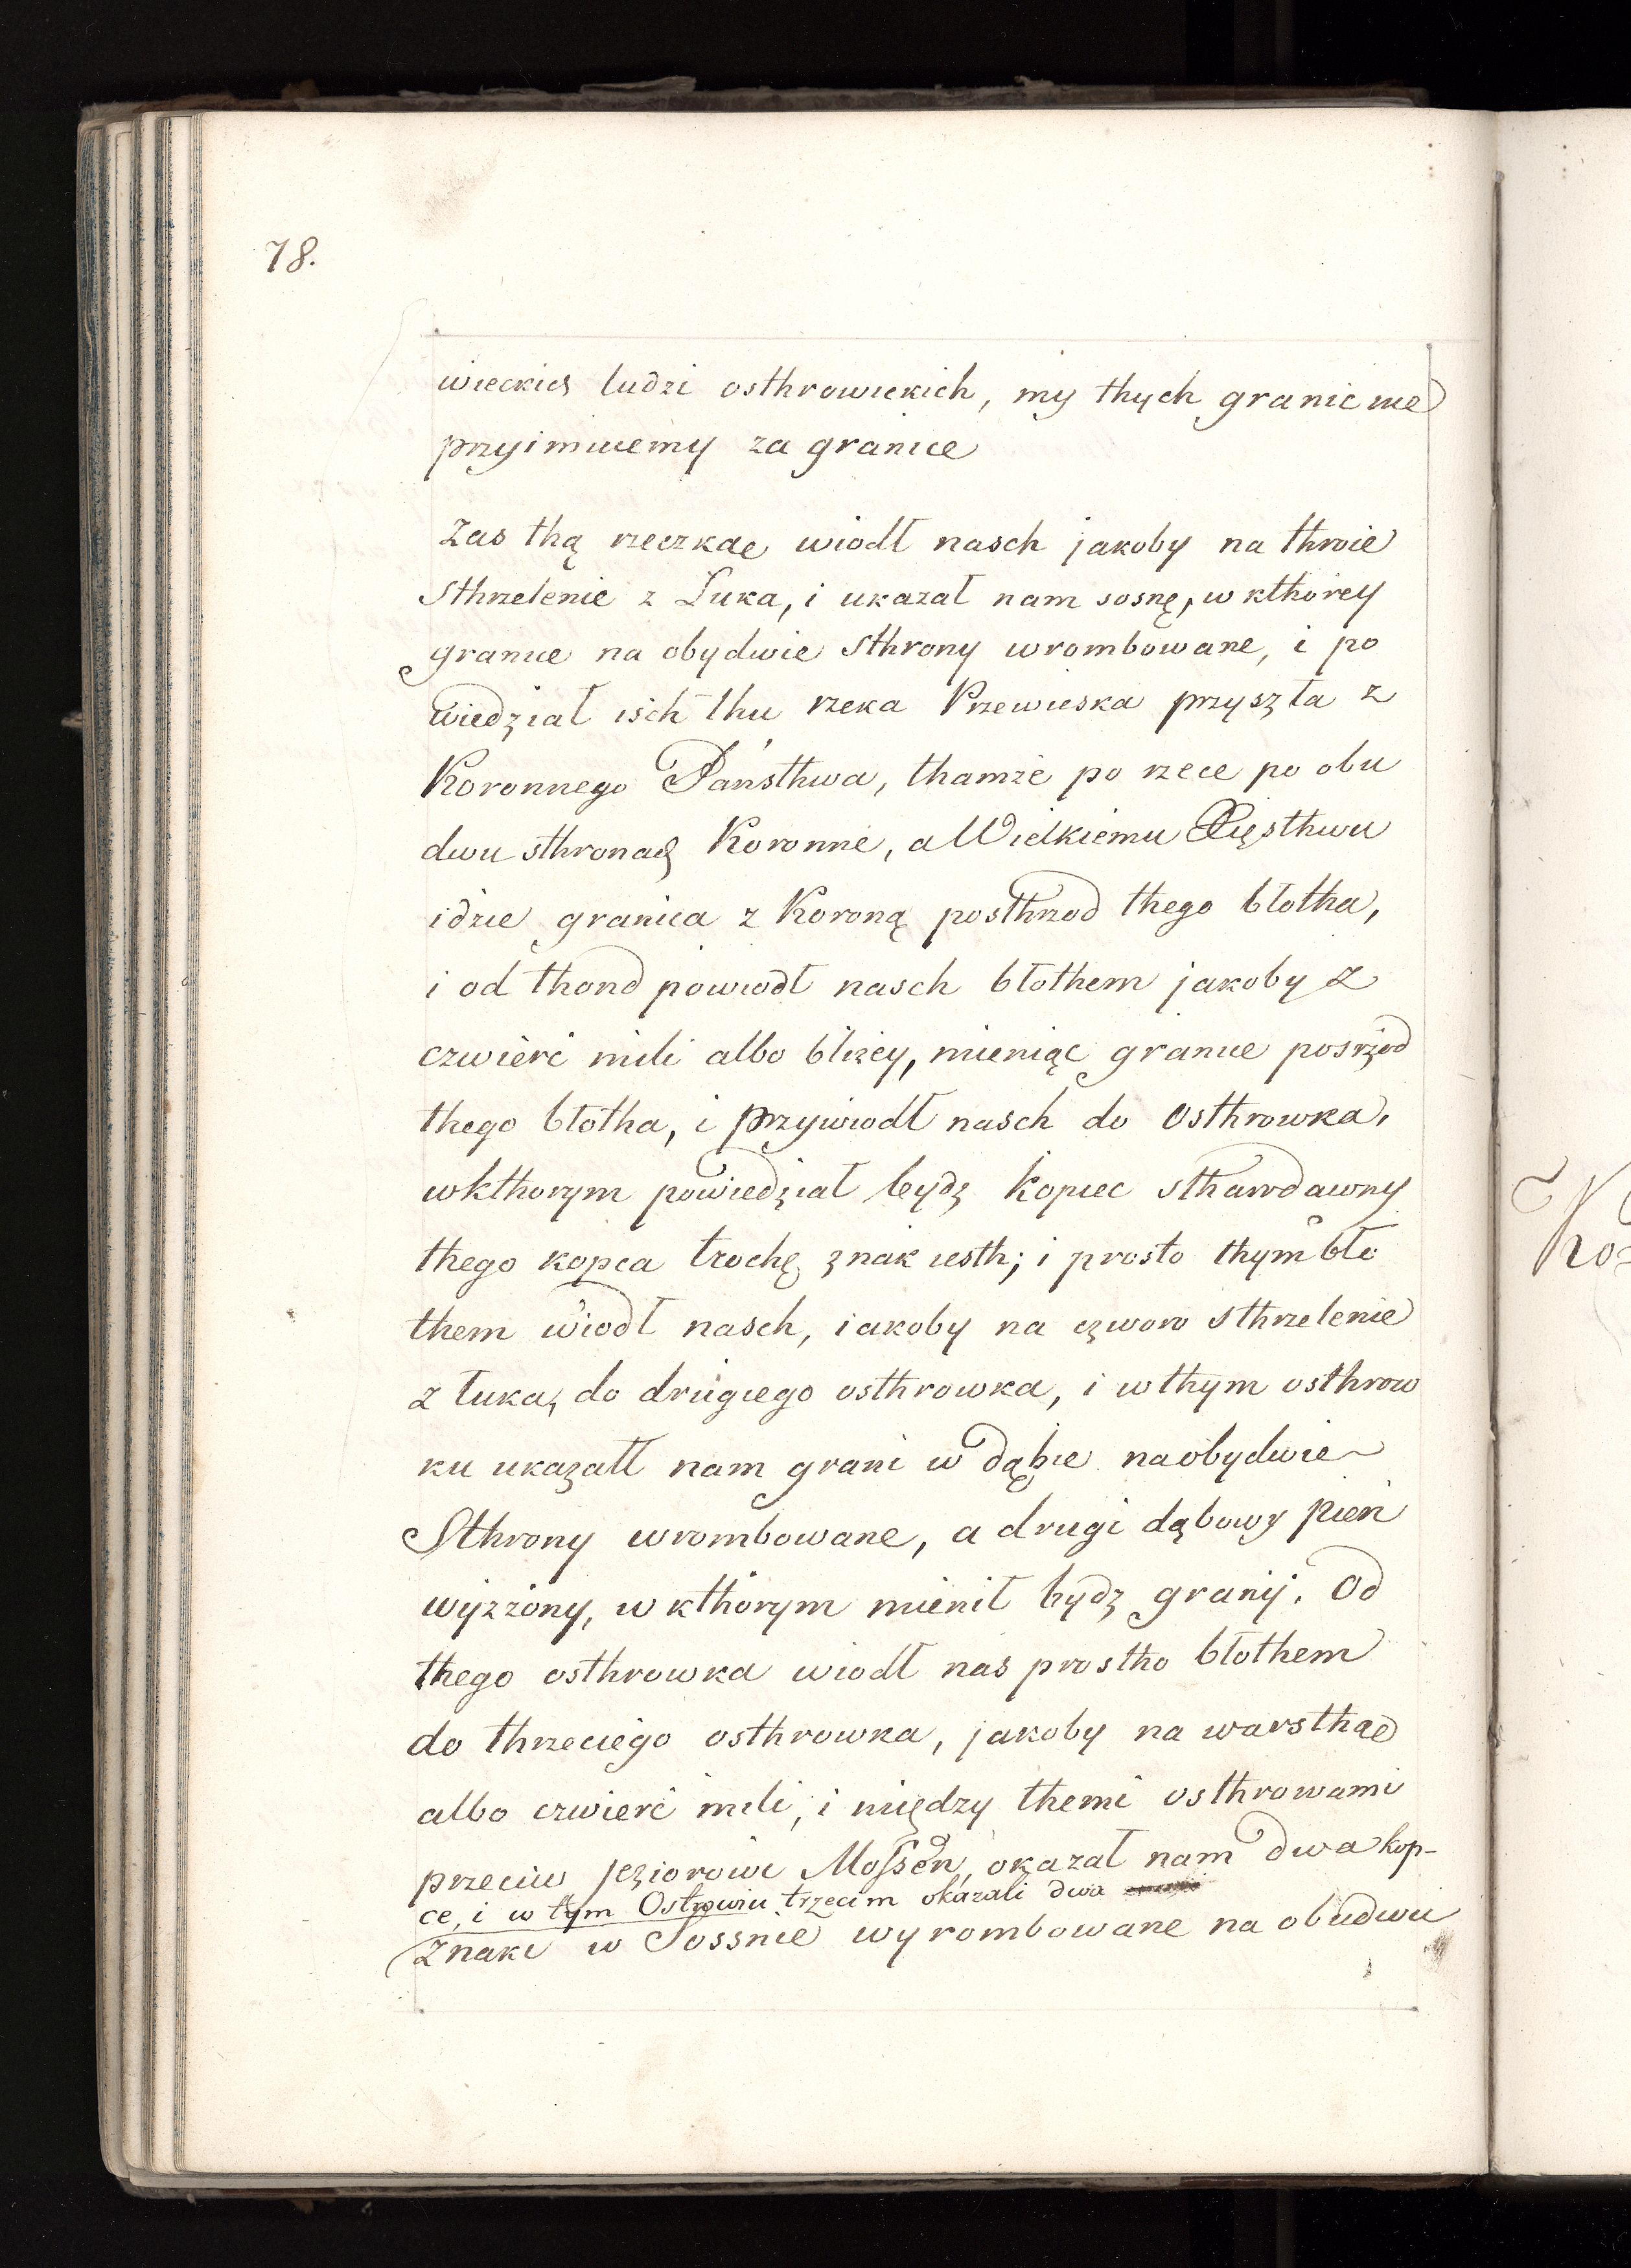 78.
wieckich ludzi osthrowickich, my thych granic nie
przyimuiemy za granice
Zas thą rzeczkae wiodł nasch jakoby na throie
sthrzelenie z Luka, i ukazał nam sosnę, w kthorey
granice na obydwie sthrony wrombowane, i po
wiedział isch thu rzeka Przewieska przyszła z
Koronnego Państhwa, thamże po rzece po obu
dwu sthronach Koronne, a Wielkiemu Xięsthwu
idzie granica z Koroną posthrzod thego błotha,
i od thond powiodł nasch błothem jakoby z
czwierć mili albo bliżey, mieniąc granice posrzod
thego błotha, i przywiodł nasch do Osthrowka,
w kthorym powiedział bydź kopiec stharodawny
thego kopca trochę znak iesth; i prosto thym bło
them wiodł nasch, iakoby na czworo sthrzelenie
z łuka, do drugiego osthrowka, i w thym osthrow
ku ukazałł nam grani w dąbie na obydwie
Sthrony wrombowane, a drugi dąbowy pień
wyzżony, w kthorym mienił bydź granij. Od
thego osthrowka wiodł nas prostho błothem
do thrzeciego osthrowka, jakoby na warsthae
albo czwierć mili, i między themi osthrowami
przeciw jeziorowi Mossen, okazał nam dwa kop-
ce, i w tym Ostrowiu trzecim okazali dwa
znaki w Sossnie wyrombowane na obudwu
Ko